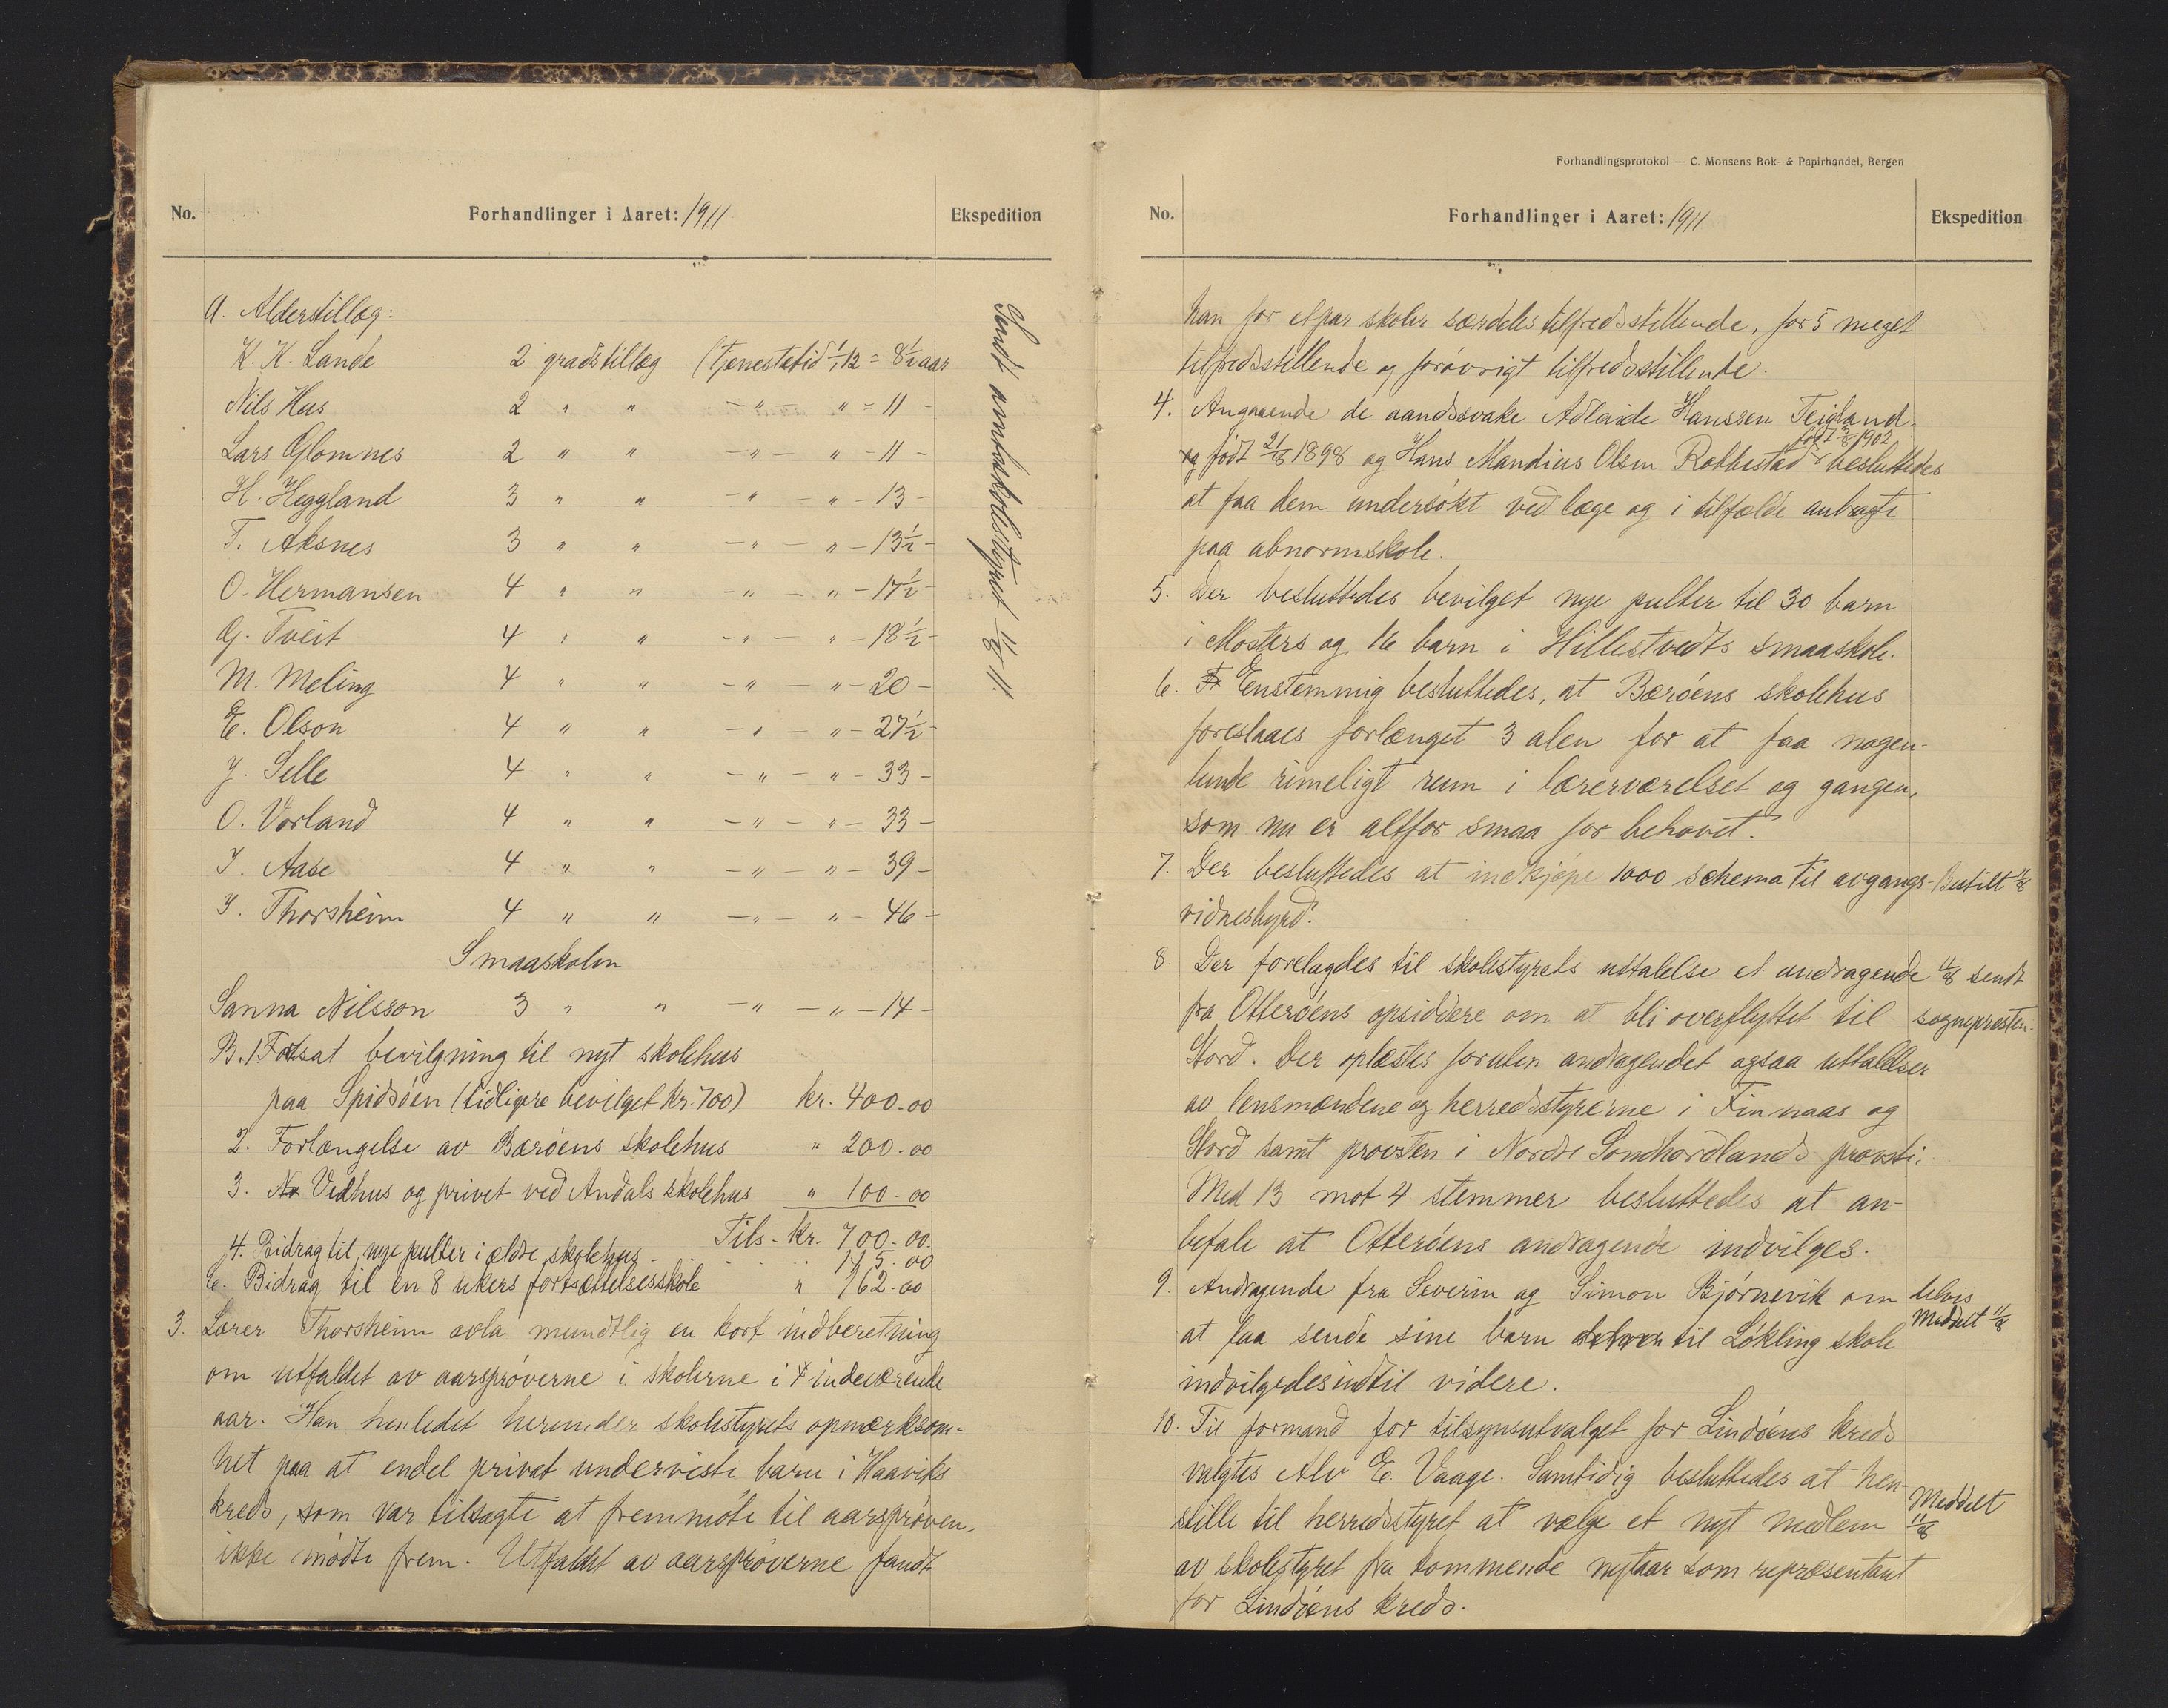 No.
Forhandlinger i Aaret: 1911
Ekspedition
A. Alderstillæg:
K. K. Lande 2 gradstillæg (Tjenestetid 1/1 12 = 8½ aar
Nils Hus 2 " " - " - " = 11 -
Lars Glomnes 2 " " - " - " - 11 -
H. Heggland 3 " " - " - " - 13 -
T. Aksnes 3 " " - " - " - 13½ -
O. Hermansen 4 " " - " - " - 17½ -
G. Tveit 4 " " - " - " - 18½ -
M. Meling 4 " " - " - " - 20 -
E. Olson 4 " " - " - " - 27½ -
J. Selle 4 " " - " - " - 33 -
O. Vorland 4 " " - " - " - 33 -
I. Aase 4 " " - " - " - 39 -
I. Thorsheim 4 " " - " - " - 46 -
Smaaskolen
Sanna Nilsson 3 " " - " - " - 14 -
B. 1. Fortsat bevilgning til nyt skolehus
paa Spidsöen (tidligere bevilget kr. 700) kr. 400.00
2. Forlængelse av Bæröens skolehus " 200.00
3. Vedhus og privet ved Andals skolehus " 100.00
Tils. kr. 700.00
4. Bidrag til nye pulter i ældre skolehus - - - - 115.00
C. Bidrag til en 8 ukers fortsættelsesskole " 162.00
3. Lærer Thorsheim avla mundtlig en kort indberetning
om utfaldet av aarspröverne i skolerne i indeværende
aar. Han henledet herunder skolestyrets opmerksom-
het paa at endel privat underviste barn i Haaviks
kreds, som var tilsagte at fremmöte til aarspröven,
ikke mödte frem. Utfaldet av aarspröverne fandt
Sendt amtsskolestyret 11/8 11.
Forhandlingsprotokol — C. Monsens Bok- & Papirhandel, Bergen
No.
Forhandlinger i Aaret: 1911
Ekspedition
han for et par skoler særdeles tilfredsstillende, for 5 meget
tilfredsstillende og forövrigt tilfredsstillende.
4. Angaaende de aandssvake Adleide Hanssen Teigland
født 1902
født 21/8 1898 og Hans Mandius Olsen Robbestad besluttedes
at faa dem undersökt ved læge og i tilfælde anbragte
paa abnormskole.
5. Der besluttedes bevilget nye pulter til 30 barn
i Mosters og 16 barn i Hillestvedts smaaskole.
6. Enstemmig besluttedes, at Bæröens skolehus
foreslaaes forlænget 3 alen for at faa nogen-
lunde rimeligt rum i lærerværelset og gangen,
som nu er altfor smaa for behovet.
7. Der besluttedes at indkjöpe 1000 schema til avgangs-
vidnesbyrd.
Bestilt 11/8
8. Der forelagdes til skolestyrets uttalelse et andragende
fra Otteröens opsiddere om at bli overflyttet til
Stord. Der oplæstes foruten andragendet ogsaa uttalelser
av lensmændene og herredsstyrerne i Finnaas og
Stord samt provsten i Nordre Söndhordlands provsti.
Med 13 mot 4 stemmer besluttedes at an-
befale at Otteröens andragende indvilges.
11/8 sendt
sognepresten.
9. Andragende fra Severin og Simon Bjørnevik om
at faa sende sine barn delvis til Løkling skole
indvilgedes indtil videre.
delvis
Meddelt 11/8
10. Til formand for tilsynsutvalget for Lindöens kreds
valgtes Alv E. Vaage. Samtidig besluttedes at hen-
stille til herredsstyret at vælge et nyt medlem
av skolestyret fra kommende nytaar som repræsentant
for Lindöens kreds.
Meddelt
11/8